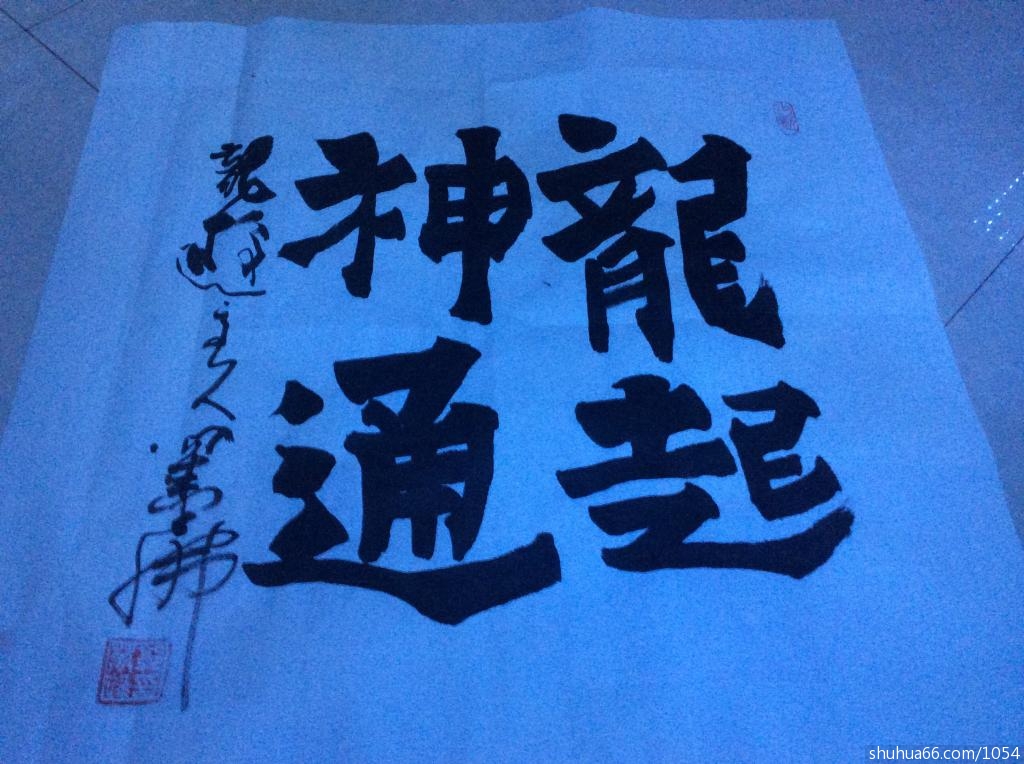 龍起
神通
龍遊主人墨佛
shuhua66.com/1054